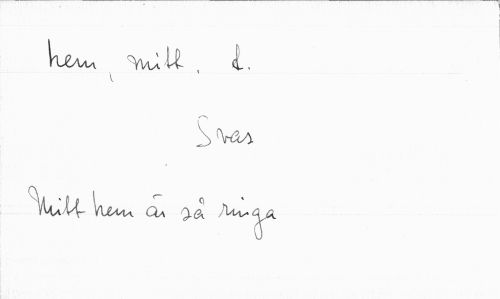 hem, mitt. d.
Svas
Mitt hem är så ringa